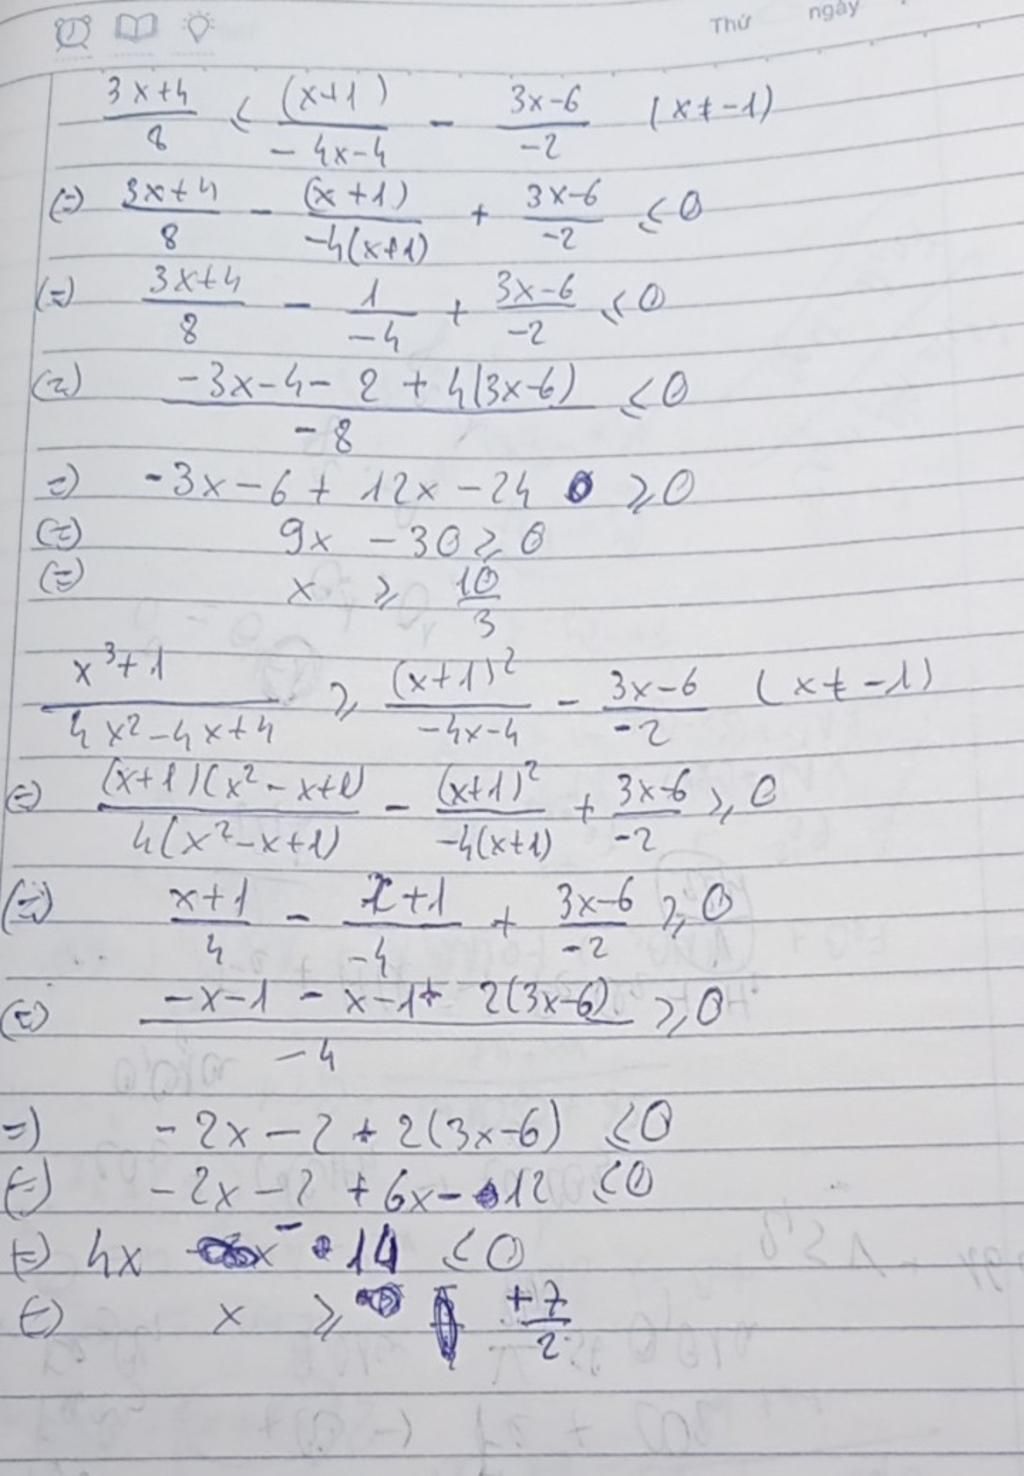 Thứ ngày
(3x+4)/8 ≤ (x+1)/(-4x-4) - (3x-6)/(-2) (x ≠ -1)
(=) (3x+4)/8 - (x+1)/(-4(x+1)) + (3x-6)/(-2) ≤ 0
(=) (3x+4)/8 - 1/(-4) + (3x-6)/(-2) ≤ 0
(=) (-3x-4-2+4(3x-6))/(-8) ≤ 0
=) -3x-6+12x-24 ≥ 0
(=) 9x - 30 ≥ 0
(=) x ≥ 10/3
(x³+1)/(4x²-4x+4) ≥ (x+1)²/(-4x-4) - (3x-6)/(-2) (x ≠ -1)
(=) (x+1)(x²-x+1)/(4(x²-x+1)) - (x+1)²/(-4(x+1)) + (3x-6)/(-2) ≥ 0
(=) (x+1)/4 - (x+1)/(-4) + (3x-6)/(-2) ≥ 0
(=) (-x-1-x-1+2(3x-6))/(-4) ≥ 0
=) -2x-2+2(3x-6) ≤ 0
(=) -2x-2+6x-12 ≤ 0
(=) 4x - 14 ≤ 0
(=) x ≥ +7/2